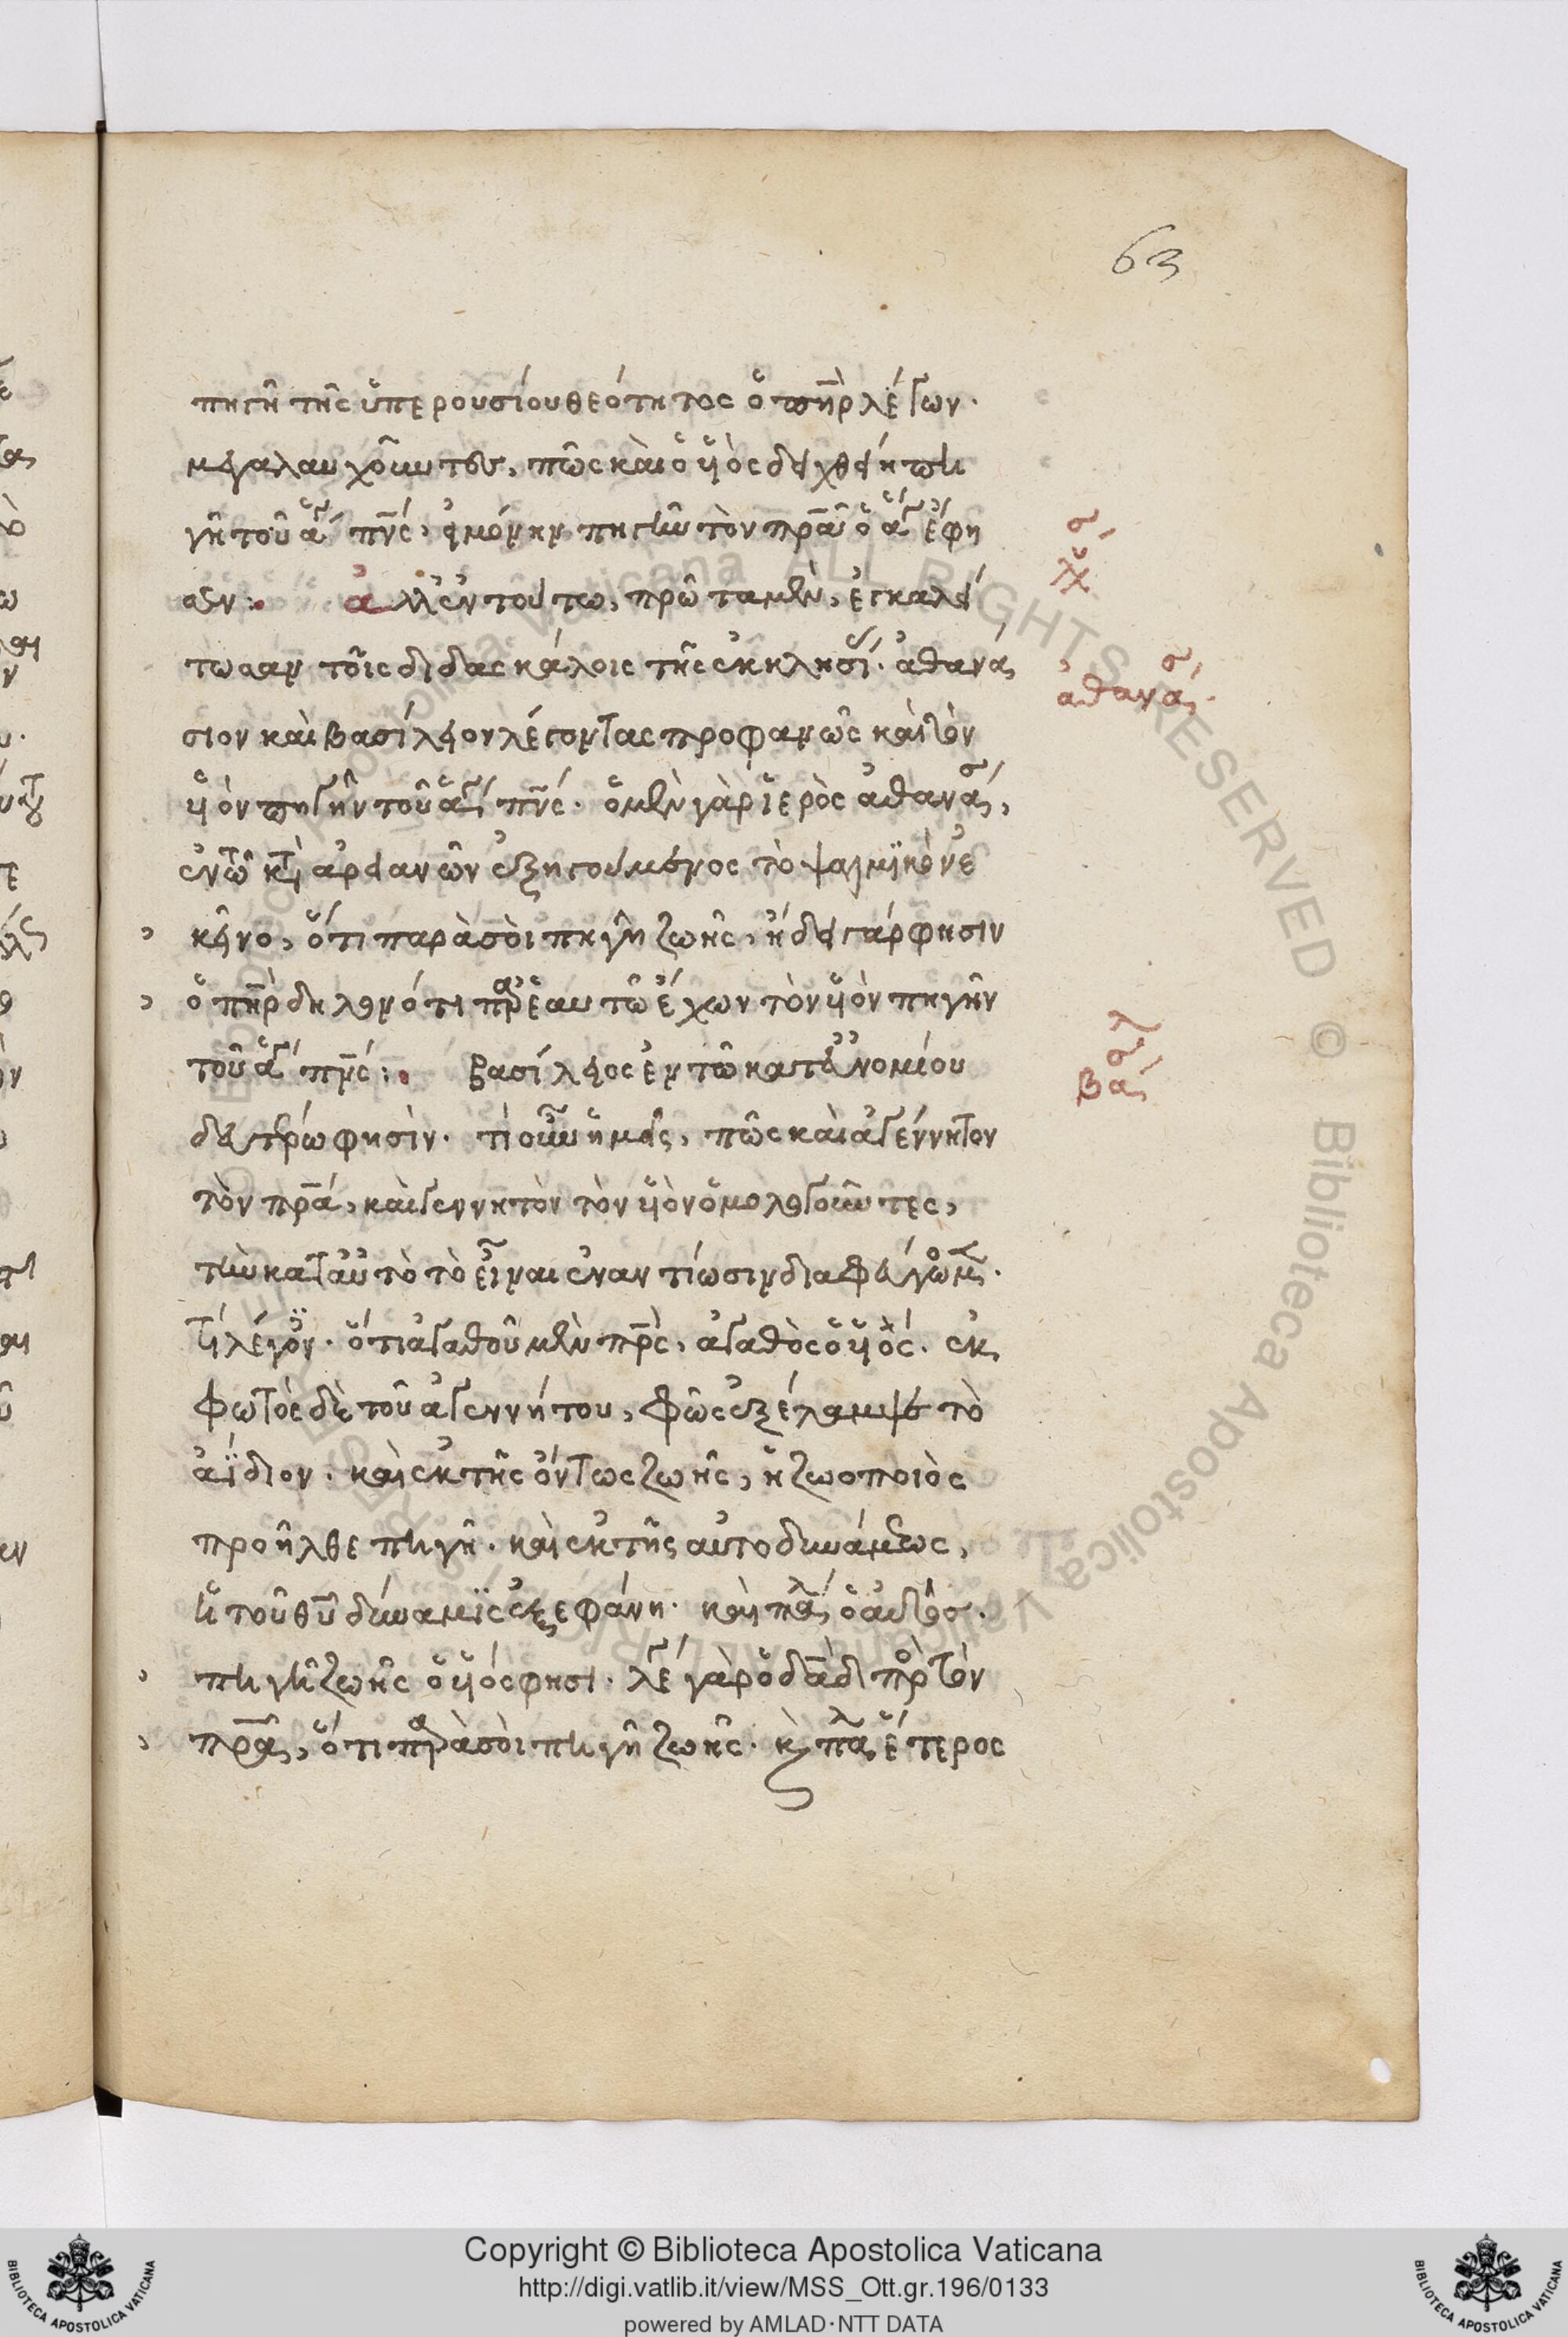 63
πηγὴ τῆς ὑπερουσίου θεότητος ὁ πη̅ρ λέγων·
μεγαλαυχοῦντος, πῶς καὶ ὁ ὑιὸς δειχθείη πη
γὴ τοῦ ἁγί πν̅ς· εἰ μόνην πηγὴν τὸν πρ̅α ὁ ἅγι ἔφη
σ,
χ
ἀλλ' ἐν τούτω, πρῶτα μὲν, ἐγκαλεί
τωσαν τοῖς διδασκάλοις τῆς ἐκκλησί· ἀθανά
ἀθανάσ,
σιον καὶ βασίλειον λέγοντας προφανῶς καὶ τὸν
ὑιὸν πηγὴν τοῦ ἁγί πν̅ς· ὁ μὲν γὰρ ἱερὸς ἀθανάσ,
ἐν τῶ κτ ἀρειανῶν ἐξηγούμενος τὸ ψαλμϊκὸν ἐ
κεῖνο, ὅτι παρὰ σοὶ πηγὴ ζωῆς, ἤδει γάρ φησιν
ὁ πη̅ρ δηλονότι παρ ἑαυτῶ ἔχων τὸν ὑιὸν πηγὴν
τοῦ ἁγί πν̅ς: βασίλειος ἐν τῶ κατ' εὐνομίου
βασλ
δευτέρω φησὶν· τί οὖν ἡμεῖς, πῶς καὶ ἀγέννητον
τὸν πρ̅α, καὶ γεννητὸν τὸν ὑιὸν ὁμολογοῦντες,
τὴν κατ' αὐτὸ τὸ εἶναι ἐναντίωσιν διαφεύγωμ·
τί λέγον· ὅτι ἀγαθοῦ μὲν πρ̅ς, ἀγαθὸς ὁ ὑιός· ἐκ
φωτὸς δὲ τοῦ ἀγεννήτου, φῶς ἐξέλαμψε τὸ
ἀΐδιον· καὶ ἐκ τῆς ὄντως ζωῆς, ἡ ζωοποιὸς
προῆλθε πηγὴ· καὶ ἐκ τῆς αὐτοδυνάμεως,
ἡ τοῦ θυ̅ δύναμϊς ἐξεφάνη· καὶ πάλ ὁ αὐτὸσ·
πηγὴ ζωῆς ὁ ὑιός φησι· λέγ γὰρ ὁ δα̅δ πρ τὸν
πρ̅α, ὅτι παρὰ σοὶ πηγὴ ζωῆς· κ̀ πάλ ἕτερος